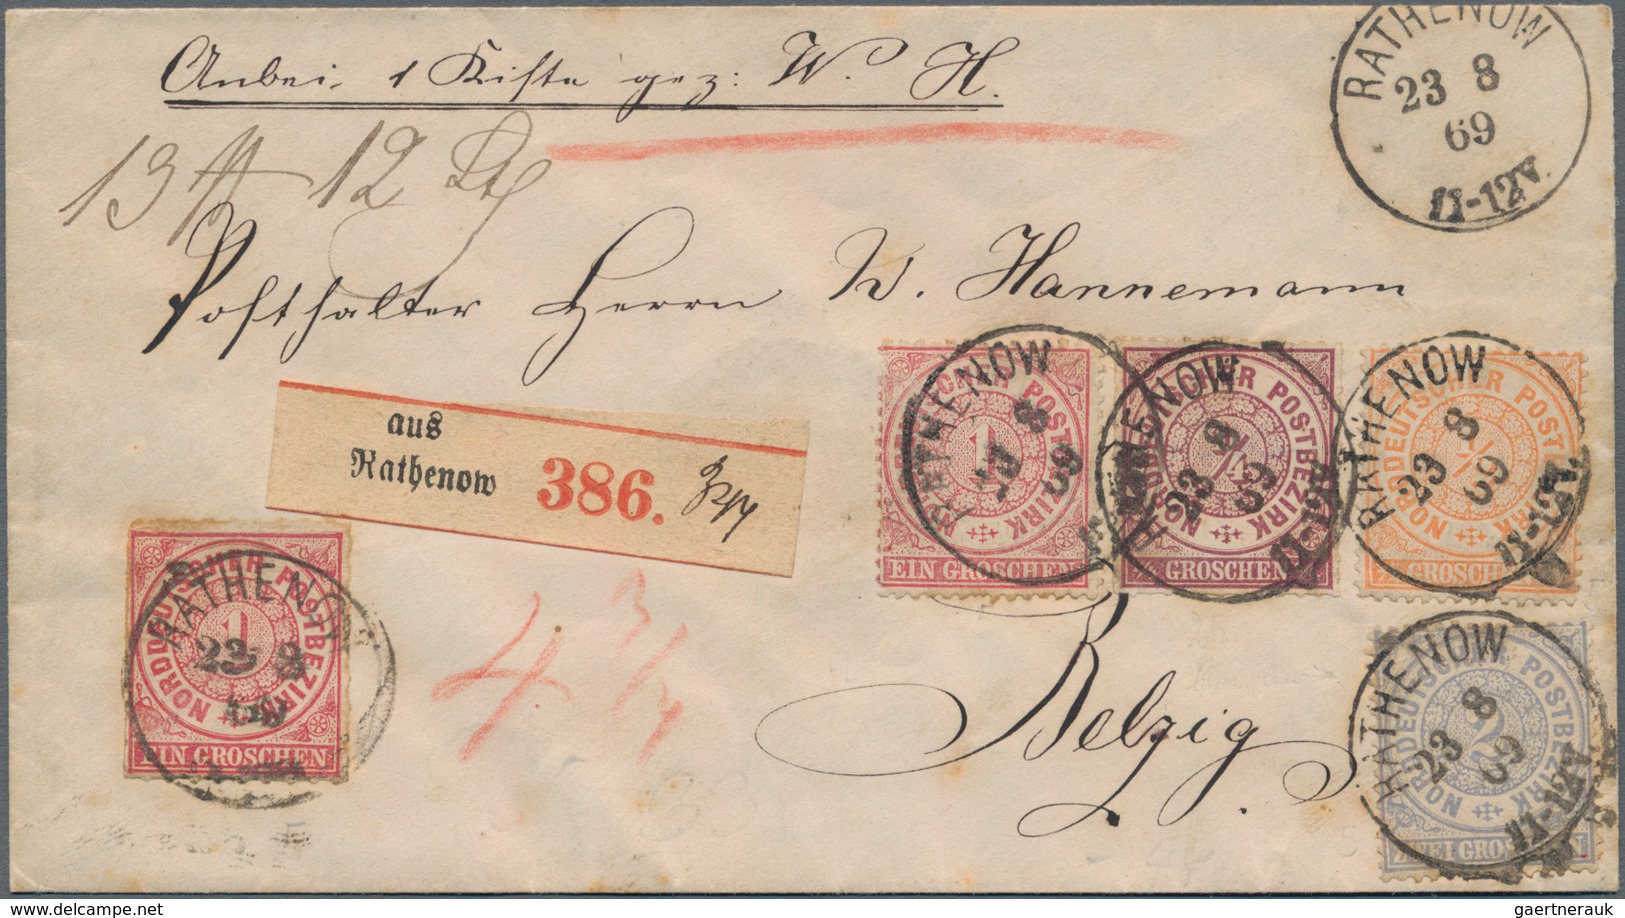 Anbei 1 Kiste gez: W. H.
RATHENOW
23 8
69
11-12V.
13 ℔ 12 Lth
Posthalter Herrn W. Hannemann
aus
Rathenow 386.
RATHENOW
23 8
69
1
NORDDEUTSCHER POSTBEZIRK
EIN GROSCHEN
RATHENOW
23 8
69
11-12V.
1/4
NORDDEUTSCHER POSTBEZIRK
1/4 GROSCHEN 1/4
RATHENOW
23 8
69
11-12V.
1/2
NORDDEUTSCHER POSTBEZIRK
1/2 GROSCHEN
RATHENOW
23 8
69
1
NORDDEUTSCHER POSTBEZIRK
EIN GROSCHEN
4 3/4
Belzig.
RATHENOW
23 8
69
11-12V.
2
NORDDEUTSCHER POSTBEZIRK
ZWEI GROSCHEN
gaertnerauk @ delcampe.net